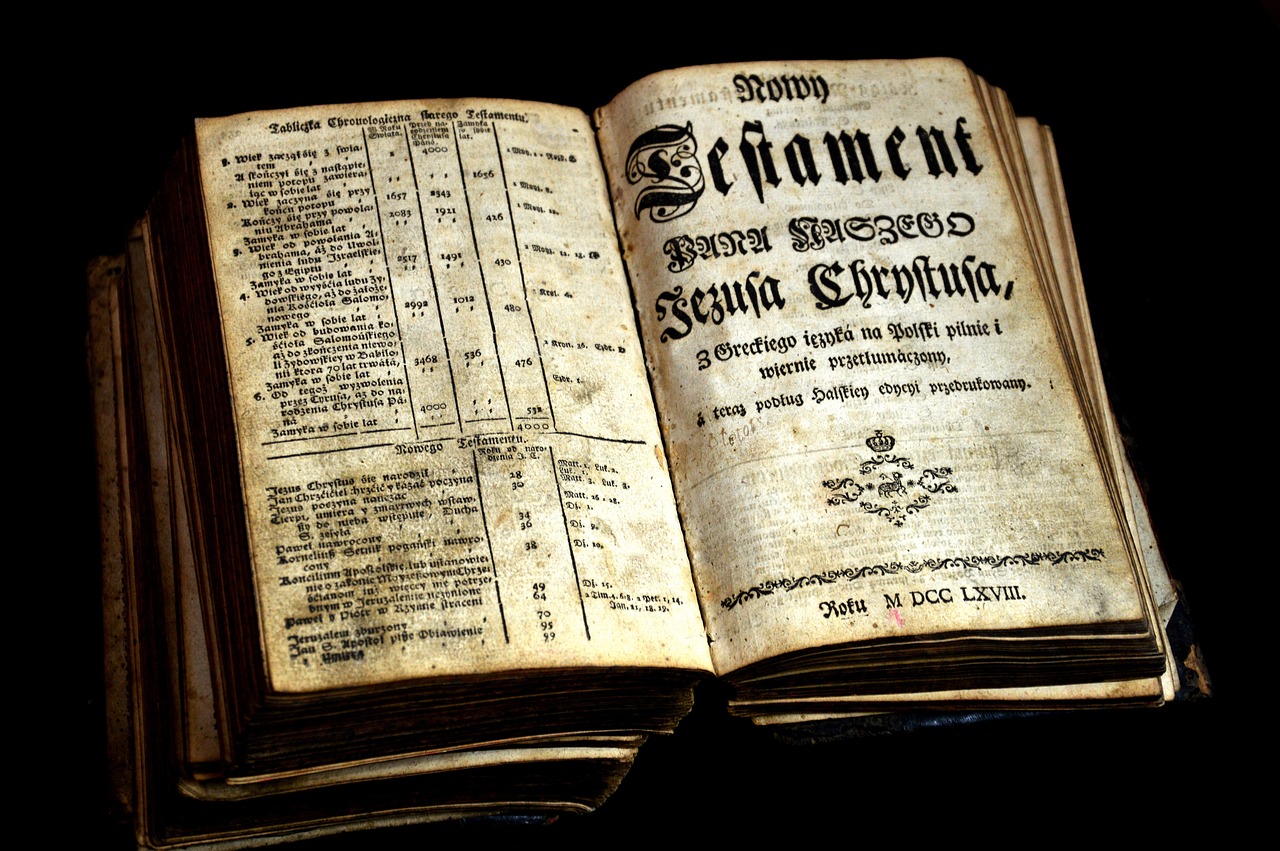 Tabliczka Chronologiczna starego Testamentu.
W Roku Swiata.
Przed narodzeniem Chrystusa Pana.
Zamyka w sobie lat.
1. Wiek zaczął się z świa-
tem 1 4000 1 Moy. 1
A skończył się z nastąpie-
niem potopu zawiera-
iąc w sobie lat 1656
2. Wiek zaczyna się przy
końcu potopu 1657 2343
Kończy się przy powoła-
niu Abrahama 2083 1921
Zamyka w sobie lat 426
3. Wiek od powołania A-
brahama, aż do Uwol-
nienia ludu Izraelskie-
go z Egiptu 2517 1491
Zamyka w sobie lat 430
4. Wiek od wyyścia ludu Zy-
dowskiego, aż do założe-
nia Kościoła Salomo-
nowego 2992 1012
Zamyka w sobie lat 480
5. Wiek od budowania ko-
ścioła Salomońskiego
aż do zkończenia niewo-
li Zydowskiey w Babilo-
nii ktora 70 lat trwała, 3468 536
Zamyka w sobie lat 476
6. Od tegoż wyzwolenia
przez Cyrusa, aż do na-
rodzenia Chrystusa Pa-
na 4000
Zamyka w sobie lat 532
4000
Nowego Testamentu.
Roku od naro-
dzenia J. C.
Jezus Chrystus się narodził
Jan Chrzciciel chrzcić y kazać poczyna 28
Jezus poczyna nauczać 30
Cierpi, umiera y zmartwych wstaw-
szy do nieba wstępuie, Ducha
S. zsyła 34
Paweł nawrocony 36
Korneliusz Setnik pogański nawro-
cony 38
Koncilium Apostolskie, lub ustanowie-
nie o zakonie Moyżeszowym Chrze-
ścianom już więcey nie potrze-
bnym w Jeruzalemie uczynione 49
Paweł y Piotr w Rzymie straceni 64
Jeruzalem zburzony 70
Jan S. Apostoł pisze Obiawienie 95
y umiera 99
Nowy
Testament
PANA NASZEGO
Jezusa Chrystusa,
Z Greckiego ięzyká na Polski pilnie i
wiernie przetłumáczony,
á teraz podług Halskiey edycyi przedrukowany.
Roku M DCC LXVIII.